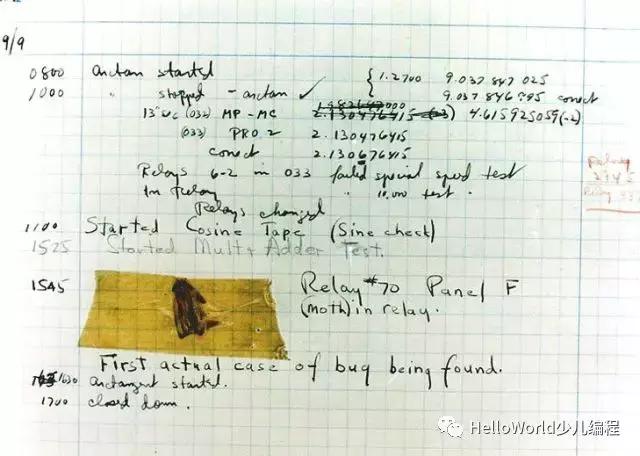 9/9
0800 arctan started
1000 " stopped - arctan ✓ { 1.2700 9.037 847 025
9.037 846 995 correct
13"uc (032) MP-MC 1.982647000 2.130476415 (-3) 4.615925059(-2)
(033) PRO 2 2.130476415
correct 2.130676415
Relays 6-2 in 033 failed special speed test
In Relay " 10,000 test.
Relays changed
1100 Started Cosine Tape (Sine check)
1525 Started Mult+Adder Test.
1545 Relay #70 Panel F
(moth) in relay.
First actual case of bug being found.
1630 arctangent started.
1700 closed down.
Relay
Relay
HelloWorld少儿编程